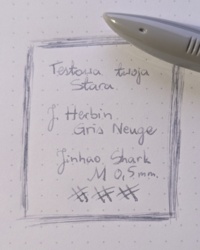 Testowa twoja
Stara
J. Herbin
Gris Neuge
Jinhao Shark
M 0,5 mm
###